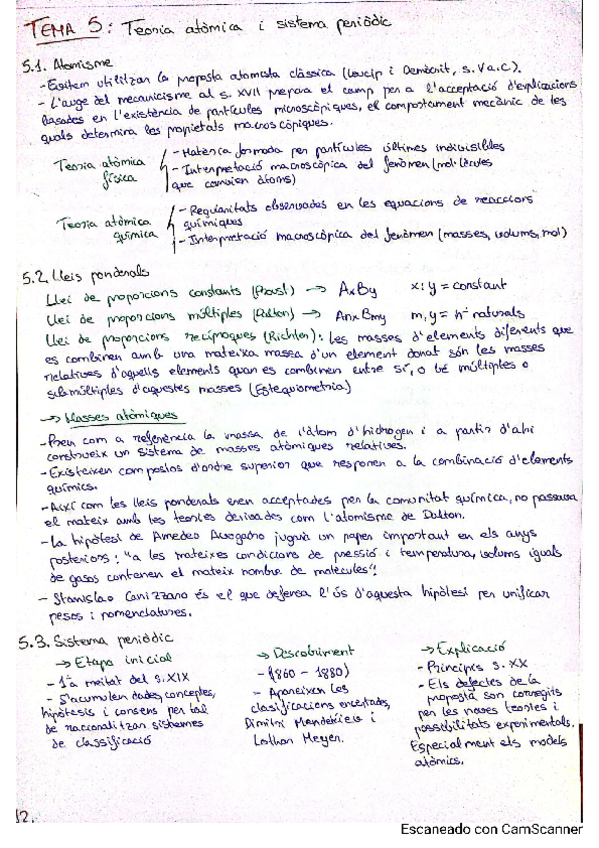 TEMA 5: Teoria atòmica i sistema periòdic
5.1. Atomisme
- Evitem utilitzar la proposta atomista clàssica (Leucip i Demòcrit, s. V a.C).
- L'auge del mecanicisme al s. XVII prepara el camp per a l'acceptació d'explicacions
basades en l'existència de partícules microscòpiques, el comportament mecànic de les
quals determina les propietats macroscòpiques.
Teoria atòmica física
- Matèria formada per partícules últimes indivisibles
- Interpretació macroscòpica del fenòmen (mol·lècules
que canvien àtoms)
Teoria atòmica química
- Regularitats observades en les equacions de reaccions
químiques
- Interpretació macroscòpica del fenòmen (masses, volums, mol)
5.2. Lleis ponderals
Llei de proporcions constants (Proust) → AxBy x:y = constant
Llei de proporcions múltiples (Dalton) → AnxBmy m,y = nº naturals
Llei de proporcions recíproques (Richter): les masses d'elements diferents que
es combinen amb una mateixa massa d'un element donat són les masses
relatives d'aquells elements quan es combinen entre sí, o bé múltiples o
submúltiples d'aquestes masses (Estequiometria)
→ Masses atòmiques
- Pren com a referència la massa de l'àtom d'hidrogen i a partir d'ahi
construeix un sistema de masses atòmiques relatives.
- Existeixen compostos d'ordre superior que responen a la combinació d'elements
químics.
- Així com les lleis ponderals eren acceptades per la comunitat química, no passava
el mateix amb les teories derivades com l'atomisme de Dalton.
- La hipòtesi de Amedeo Avogadro jugurà un paper important en els anys
posteriors: "a les mateixes condicions de pressió i temperatura, volums iguals
de gasos contenen el mateix nombre de molècules".
- Stanislao Canizzaro és el que defensa l'ús d'aquesta hipòtesi per unificar
pesos i nomenclatures.
5.3. Sistema periòdic
→ Etapa inicial
- 1ª meitat del s. XIX
- S'acumulen dades, conceptes,
hipòtesis i consens per tal
de racionalitzar sistemes
de classificació
→ Descobriment
- (1860 - 1880)
- Apareixen les
clasificacions encertades,
Dimitri Mendeleiev i
Lothan Meyer.
→ Explicació
- Principis s. XX
- Els defectes de la
proposta són corregits
per les noves teories i
possibilitats experimentals.
Especialment els models
atòmics.
12.
Escaneado con CamScanner